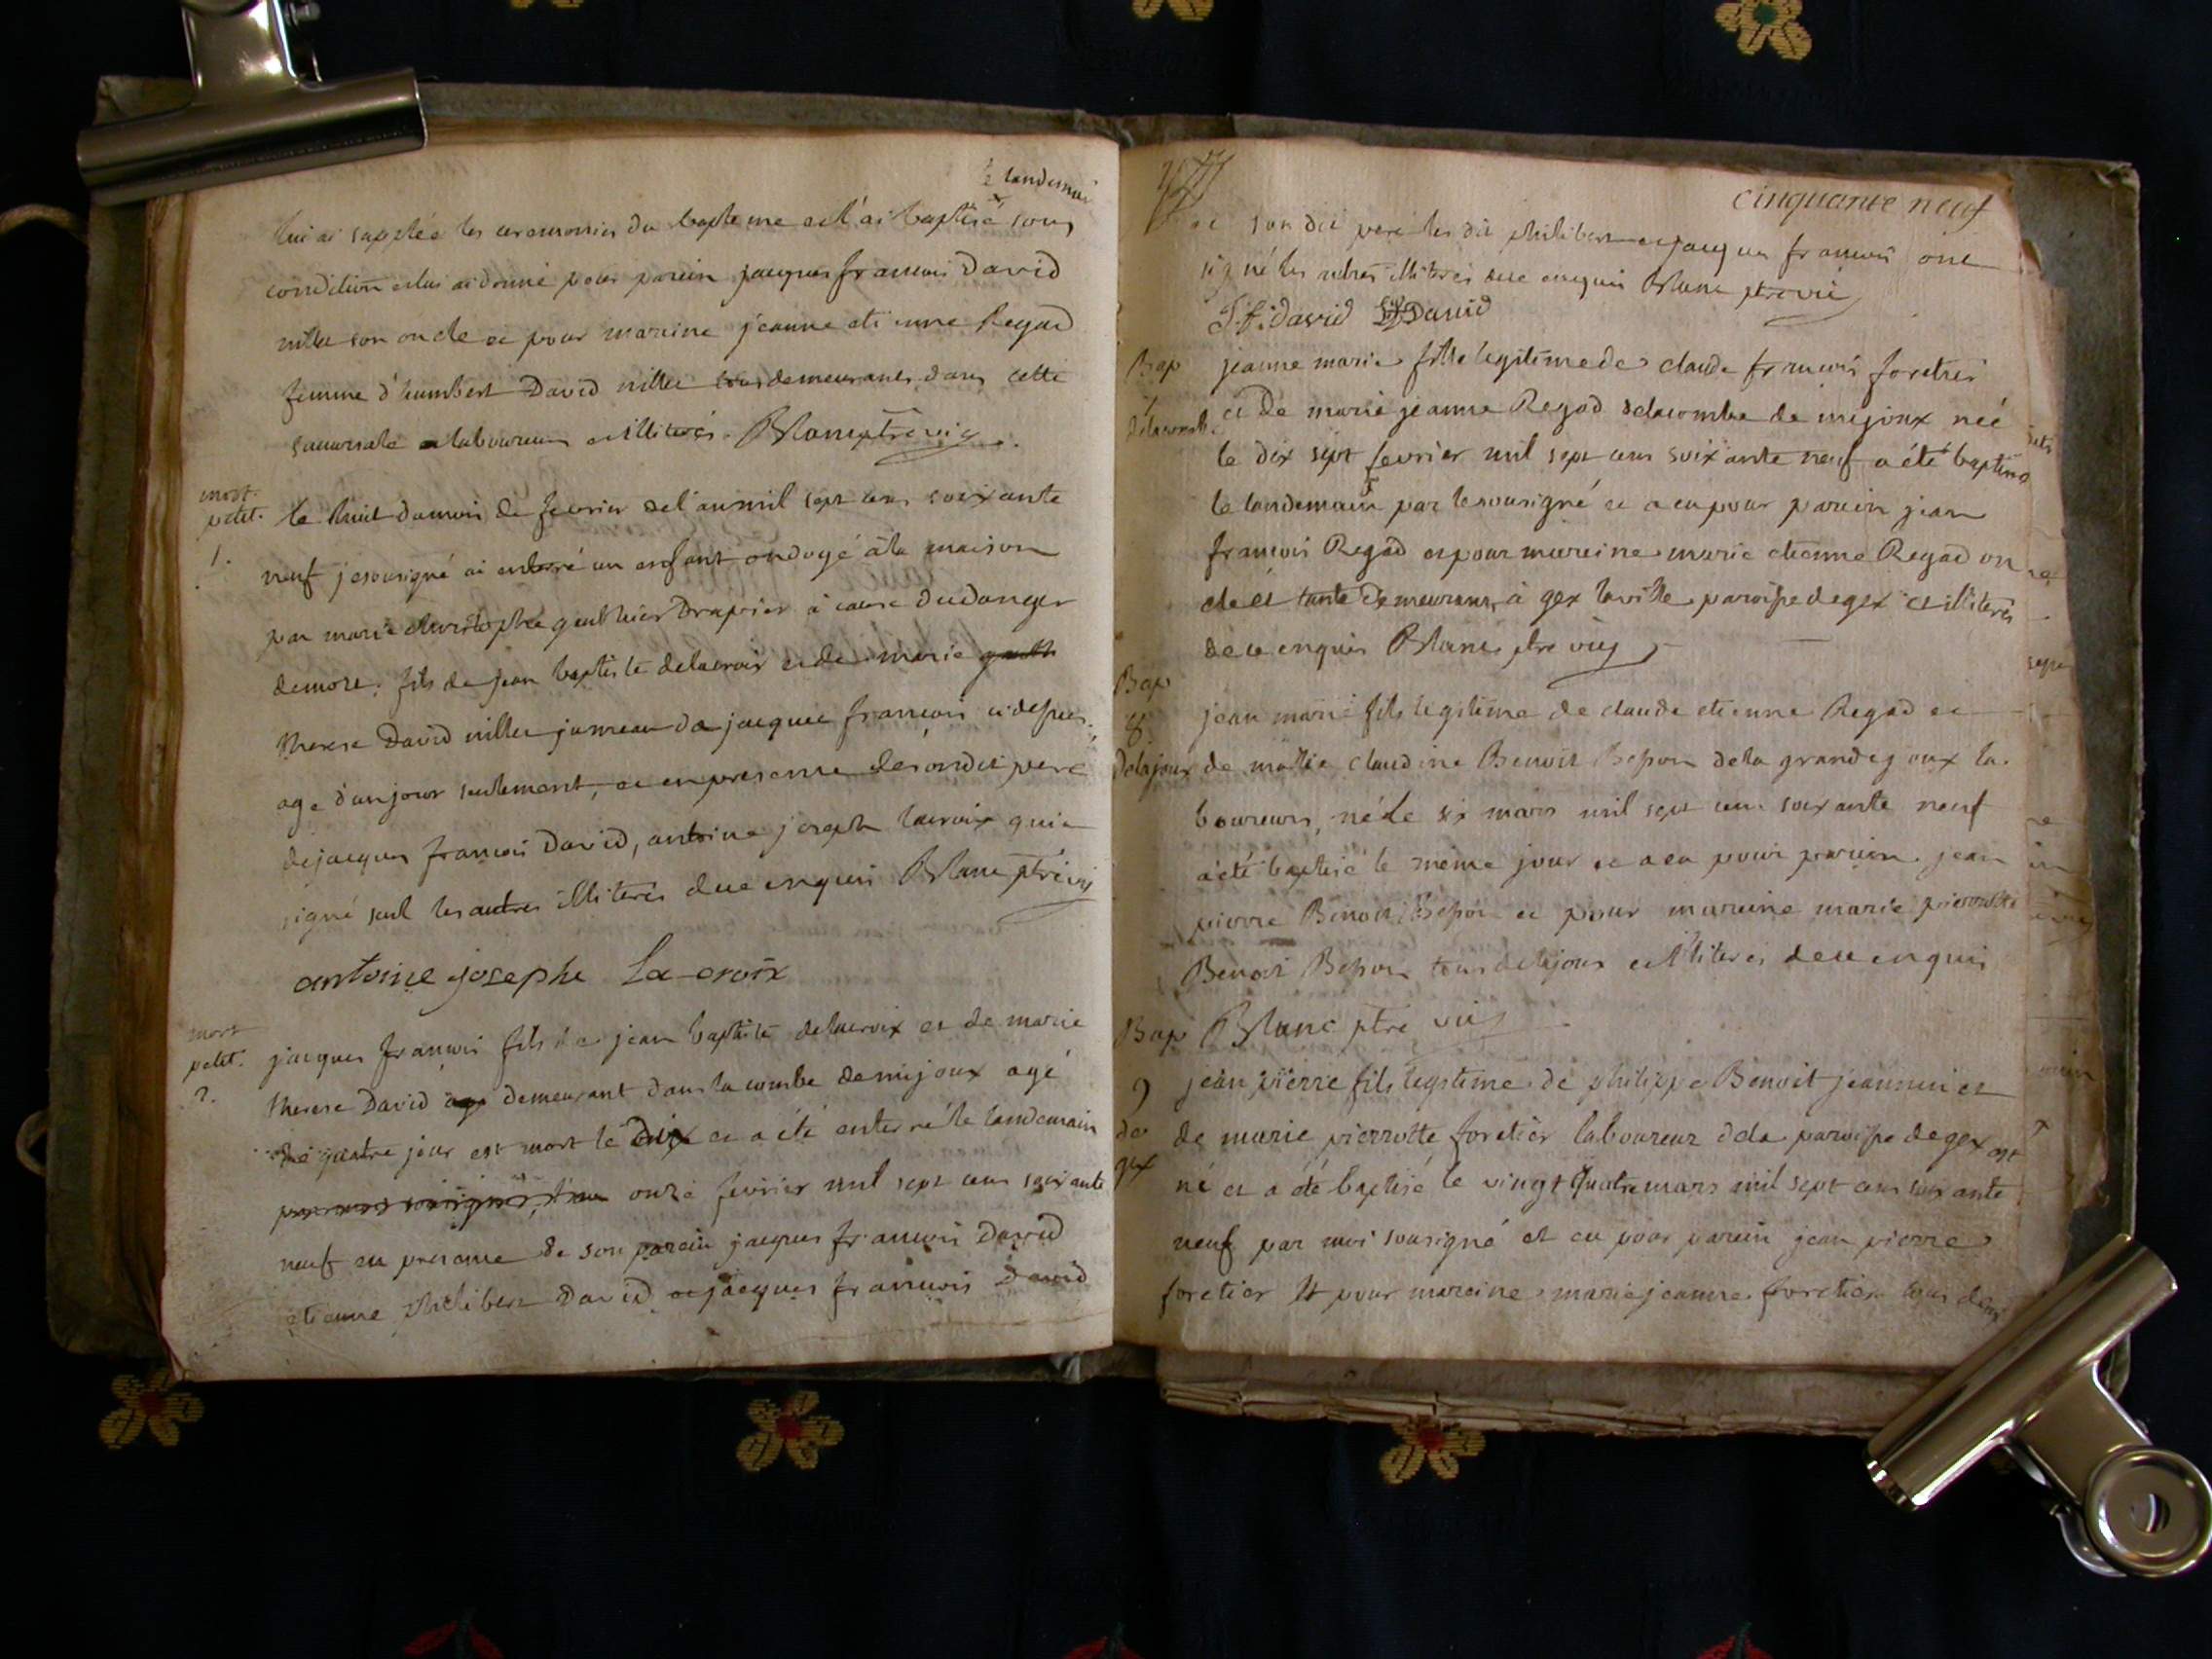 landemai
lui ai supplée les ceremonies du bapteme et l'ai baptisé sous
condition et lui ai donné pour parein jacques francois David
millet son oncle et pour mareine jeanne etienne Regad
femme d'humbert David millet tous demeurants dans cette
succursale laboureurs et illiterés. Blanc ptre vic
mort
petit.
1.
le huit du mois de fevrier de l'an mil sept cens soixante
neuf je sousigné ai enterré un enfant ondoyé à la maison
par marie christophe gauthier Drapier à cause du danger
de mort. fils de jean baptiste delacroix et de marie
therese David millet jumeau de jacques francois ci
age d'un jour seulement, et en presence de son dit pere
de jacques francois David, antoine joseph lacroix qui a
signé seul les autres illiterés de ce enquis Blanc ptre vic
antoine josephe La-croix
mort
petit.
2.
jacques francois fils de jean baptiste delacroix et de marie
therese David demeurant dans la combe de mijoux agé
de quatre jour est mort le dix et a été enterré le landemain
onze fevrier mil sept cens soixante
neuf en presence de son parein jacques francois David
etienne philibert David et jacques francois David
cinquante neuf
et son dit pere les dit philibert et jacques francois ont
signé les autres illiterés de ce enquis Blanc ptre vic
J. f. david David
Bap
7
delacombe
jeanne marie fille legitime de claude francois foretier
et de marie jeanne Regad delacombe de mijoux née
le dix sept fevrier mil sept cens soixante neuf a été baptisé
le landemain par le sousigné et a eu pour parein jean
francois Regad et pour mareine marie etienne Regad on
cle et tante demeurans à gex la ville paroisse de gex et illiterés
de ce enquis Blanc ptre vic
Bap
8
delajoux
jean marie fils legitime de claude etienne Regad et
de marie claudine Benoit Bepoix de la grande joux la
boureurs, né le six mars mil sept cens soixante neuf
a été baptisé le meme jour et a eu pour parein jean
pierre Benoit et pour mareine marie pierrotte
Benoit tous delajoux et illiterés de ce enquis
Blanc ptre vic
Bap
9
de
gex
jean pierre fils legitime de philippe Benoit jeannin et
de marie pierrotte foretier laboureur de la paroisse de gex est
né et a été baptisé le vingt quatre mars mil sept cens soixante
neuf par moi sousigné et eu pour parein jean pierre
foretier et pour mareine marie jeanne foretier tous